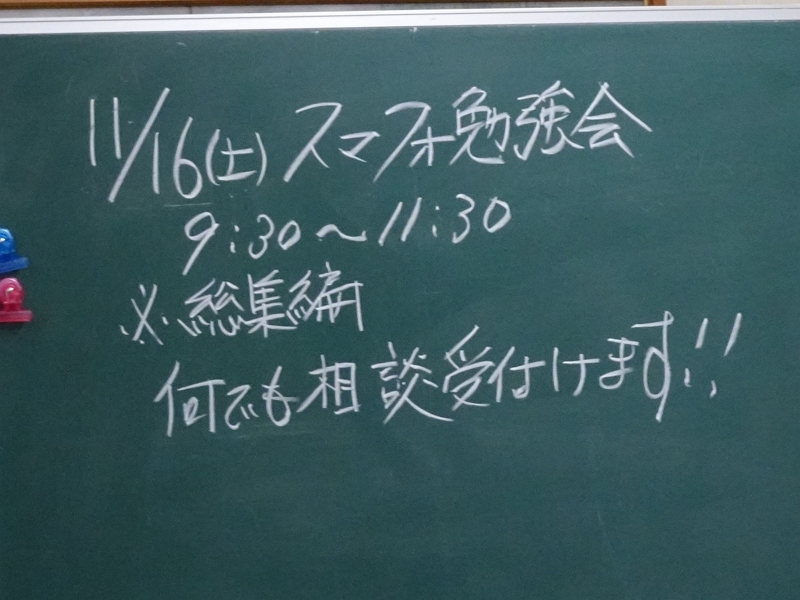 11/16(土) スマフォ勉強会
9:30〜11:30
※総集編
何でも相談受付けます!!